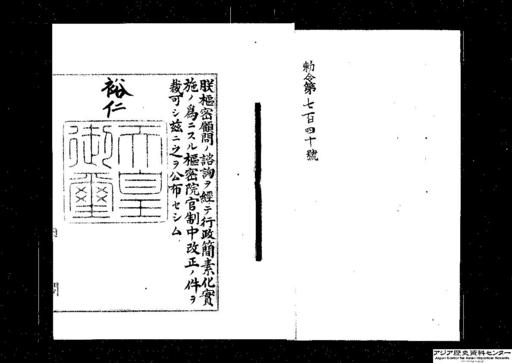 勅令第七百四十號
朕樞密顧問ノ諮詢ヲ經テ行政簡素化實
施ノ爲ニスル樞密院官制中改正ノ件ヲ
裁可シ玆ニ之ヲ公布セシム
裕仁
天皇
御璽
アジア歴史資料センター
Japan Center for Asian Historical Records